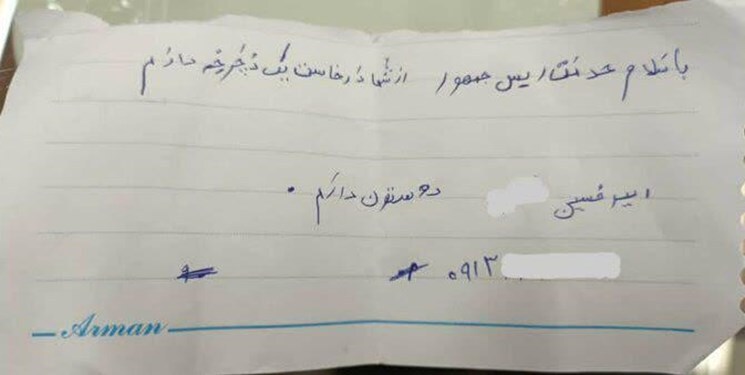 با سلام خدمت رییس جمهور از شما درخاست یک دچرخه دارم
امیر حسین دوستون دارم .
۰۹۱۳
Arman